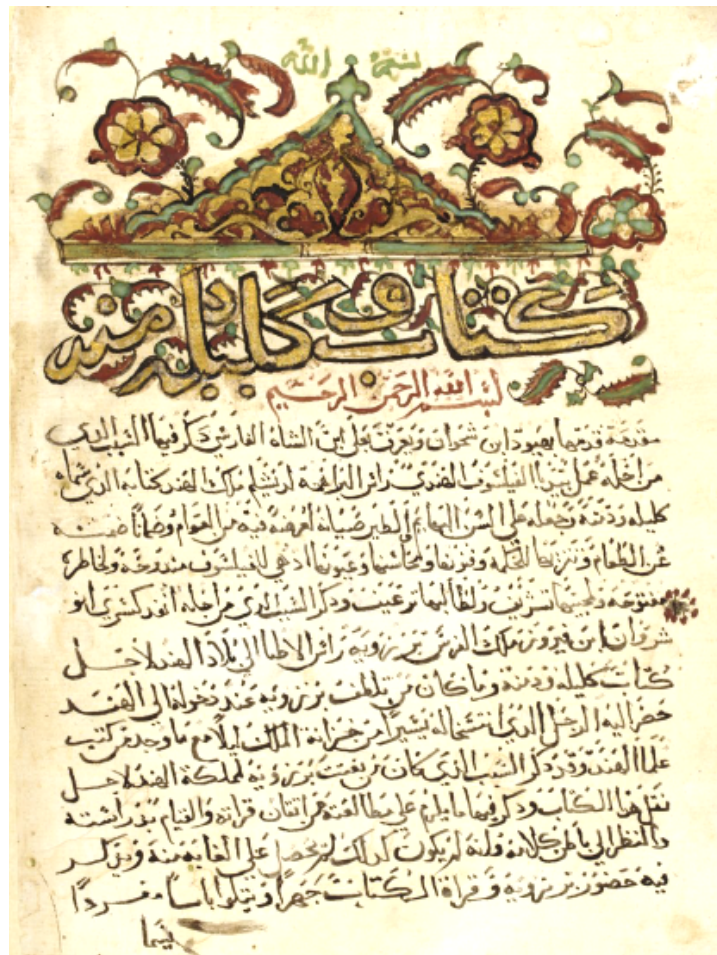 بسم الله
كتاب كليله و دمنه
بسم الله الرحمن الرحيم
مقدمة قدمها بهنود ابن سحوان ويعرف بعلي ابن الشاه الفارسي ذكر فيها السبب الذي
من اجله عمل بيدبا الفيلسوف الهندي راس البراهمة لدبشليم ملك الهند كتابه الذي سماه
كليله ودمنة وجعله على السن البهايم والطير صيانة لغرضه فيه من العوام وضمانا ضمنه
عن الطغام وتنزيها للحكمة وفنونها ومحاسنها وعيونها اذ هي للفيلسوف مندوحة ولخاطره
مفتوحه ولمحبيها تشريف ولطالبيها ترغيب وذكر السبب الذي من اجله انفذ كسرى انو
شروان ابن فيروز ملك الفرس برزويه راس الاطبا الى بلاد الهند لاجل
كتاب كليله ودمنة وما كان من تلطف برزويه عند دخوله الى الهند
حضر اليه الرجل الذي له سرا من خزانة الملك ليلا مع ما وجد من كتب
علما الهند وقد ذكر السبب الذي كان من بعث برزويه لمملكة الهند لاجل
نقل هذا الكتاب وذكر فيها ما يلزم على مطالعته من اتقان قراته والقيام بدراسته
والنظر الى باطن كلامه وانه لم يكون كذلك لم يحصل على الغاية منه ويذكر
فيه حضور برزويه وقراة الكتاب جهرا ويتلوا مفردا
فيما